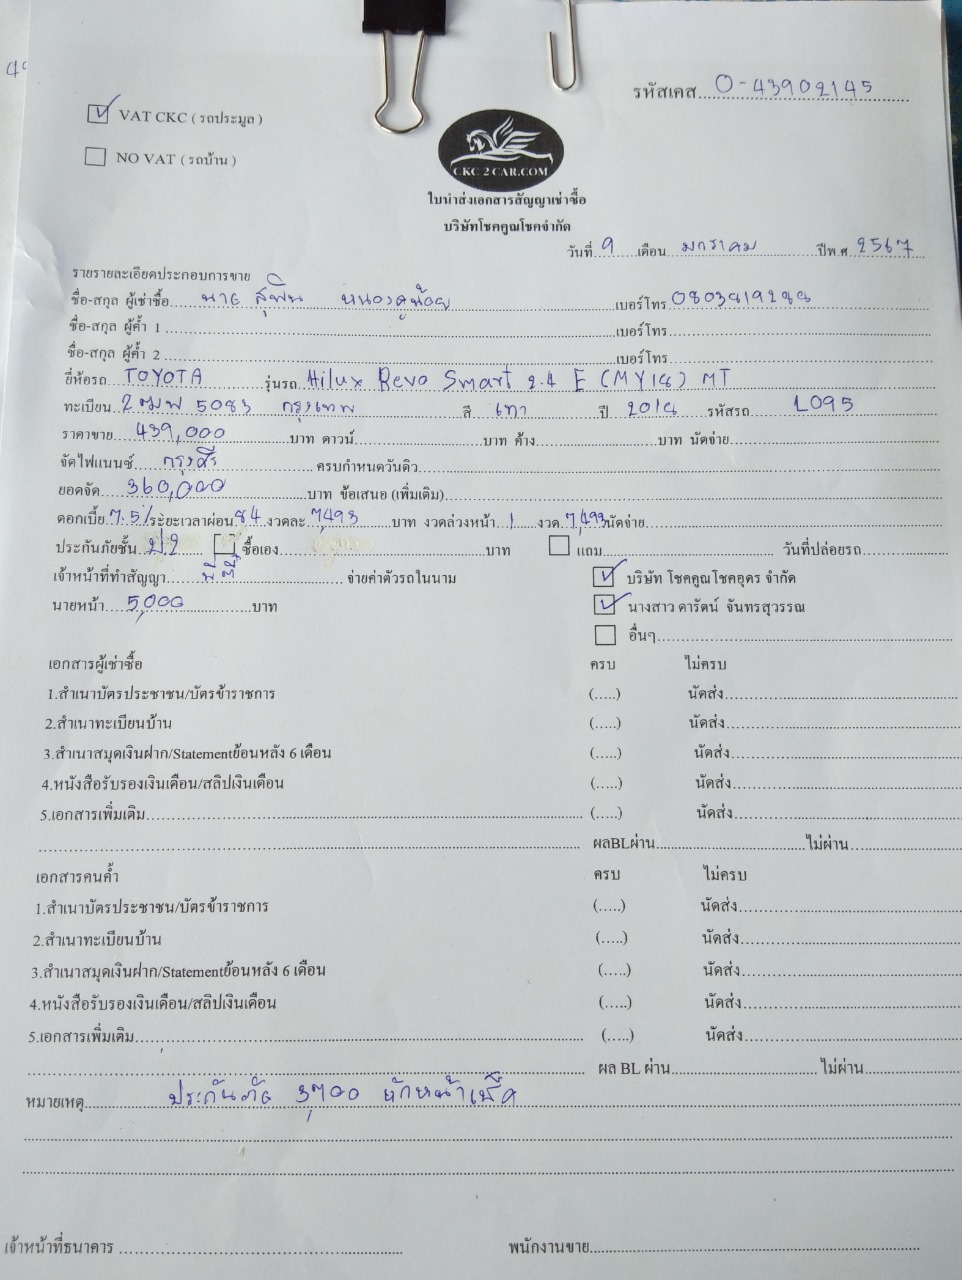 รหัสเคส....O-43902145
☑ VAT CKC ( รถประมูล )
☐ NO VAT ( รถบ้าน )
CKC 2 CAR.COM
ใบนำส่งเอกสารสัญญาเช่าซื้อ
บริษัทโชคคูณโชคจำกัด
วันที่ 9 เดือน มกราคม ปีพ.ศ 2567
รายรายละเอียดประกอบการขาย
ชื่อ-สกุล ผู้เช่าซื้อ นาย สุพิน หนองคูน้อย เบอร์โทร 0803819288
ชื่อ-สกุล ผู้ค้ำ 1 เบอร์โทร
ชื่อ-สกุล ผู้ค้ำ 2 เบอร์โทร
ยี่ห้อรถ TOYOTA รุ่นรถ Hilux Revo Smart 2.4 E (MY18) MT
ทะเบียน 2ฒพ 5083 กรุงเทพ สี เทา ปี 2018 รหัสรถ L095
ราคาขาย 439,000 บาท ดาวน์ บาท ค้าง บาท นัดจ่าย
จัดไฟแนนซ์ กรุงศรี ครบกำหนดวันดิว
ยอดจัด 360,000 บาท ข้อเสนอ (เพิ่มเติม)
ดอกเบี้ย 7.5/ ระยะเวลาผ่อน 84 งวดละ 7,493 บาท งวดล่วงหน้า 1 งวด 7,493 นัดจ่าย
ประกันภัยชั้น ป.2 ☐ ซื้อเอง บาท ☐ แถม วันที่ปล่อยรถ
เจ้าหน้าที่ทำสัญญา พี่ตี๋ จ่ายค่าตัวรถในนาม ☑ บริษัท โชคคูณโชคอุดร จำกัด
นายหน้า 5,000 บาท ☑ นางสาว ดารัตน์ จันทรสุวรรณ
☐ อื่นๆ
เอกสารผู้เช่าซื้อ ครบ ไม่ครบ
1.สำเนาบัตรประชาชน/บัตรข้าราชการ (.....) นัดส่ง
2.สำเนาทะเบียนบ้าน (.....) นัดส่ง
3.สำเนาสมุดเงินฝาก/Statementย้อนหลัง 6 เดือน (.....) นัดส่ง
4.หนังสือรับรองเงินเดือน/สลิปเงินเดือน (.....) นัดส่ง
5.เอกสารเพิ่มเติม (.....) นัดส่ง
ผลBLผ่าน ไม่ผ่าน
เอกสารคนค้ำ ครบ ไม่ครบ
1.สำเนาบัตรประชาชน/บัตรข้าราชการ (.....) นัดส่ง
2.สำเนาทะเบียนบ้าน (.....) นัดส่ง
3.สำเนาสมุดเงินฝาก/Statementย้อนหลัง 6 เดือน (.....) นัดส่ง
4.หนังสือรับรองเงินเดือน/สลิปเงินเดือน (.....) นัดส่ง
5.เอกสารเพิ่มเติม (.....) นัดส่ง
ผล BL ผ่าน ไม่ผ่าน
หมายเหตุ ประกันภัย 3,700 หักหน้าเช็ค
เจ้าหน้าที่ธนาคาร พนักงานขาย